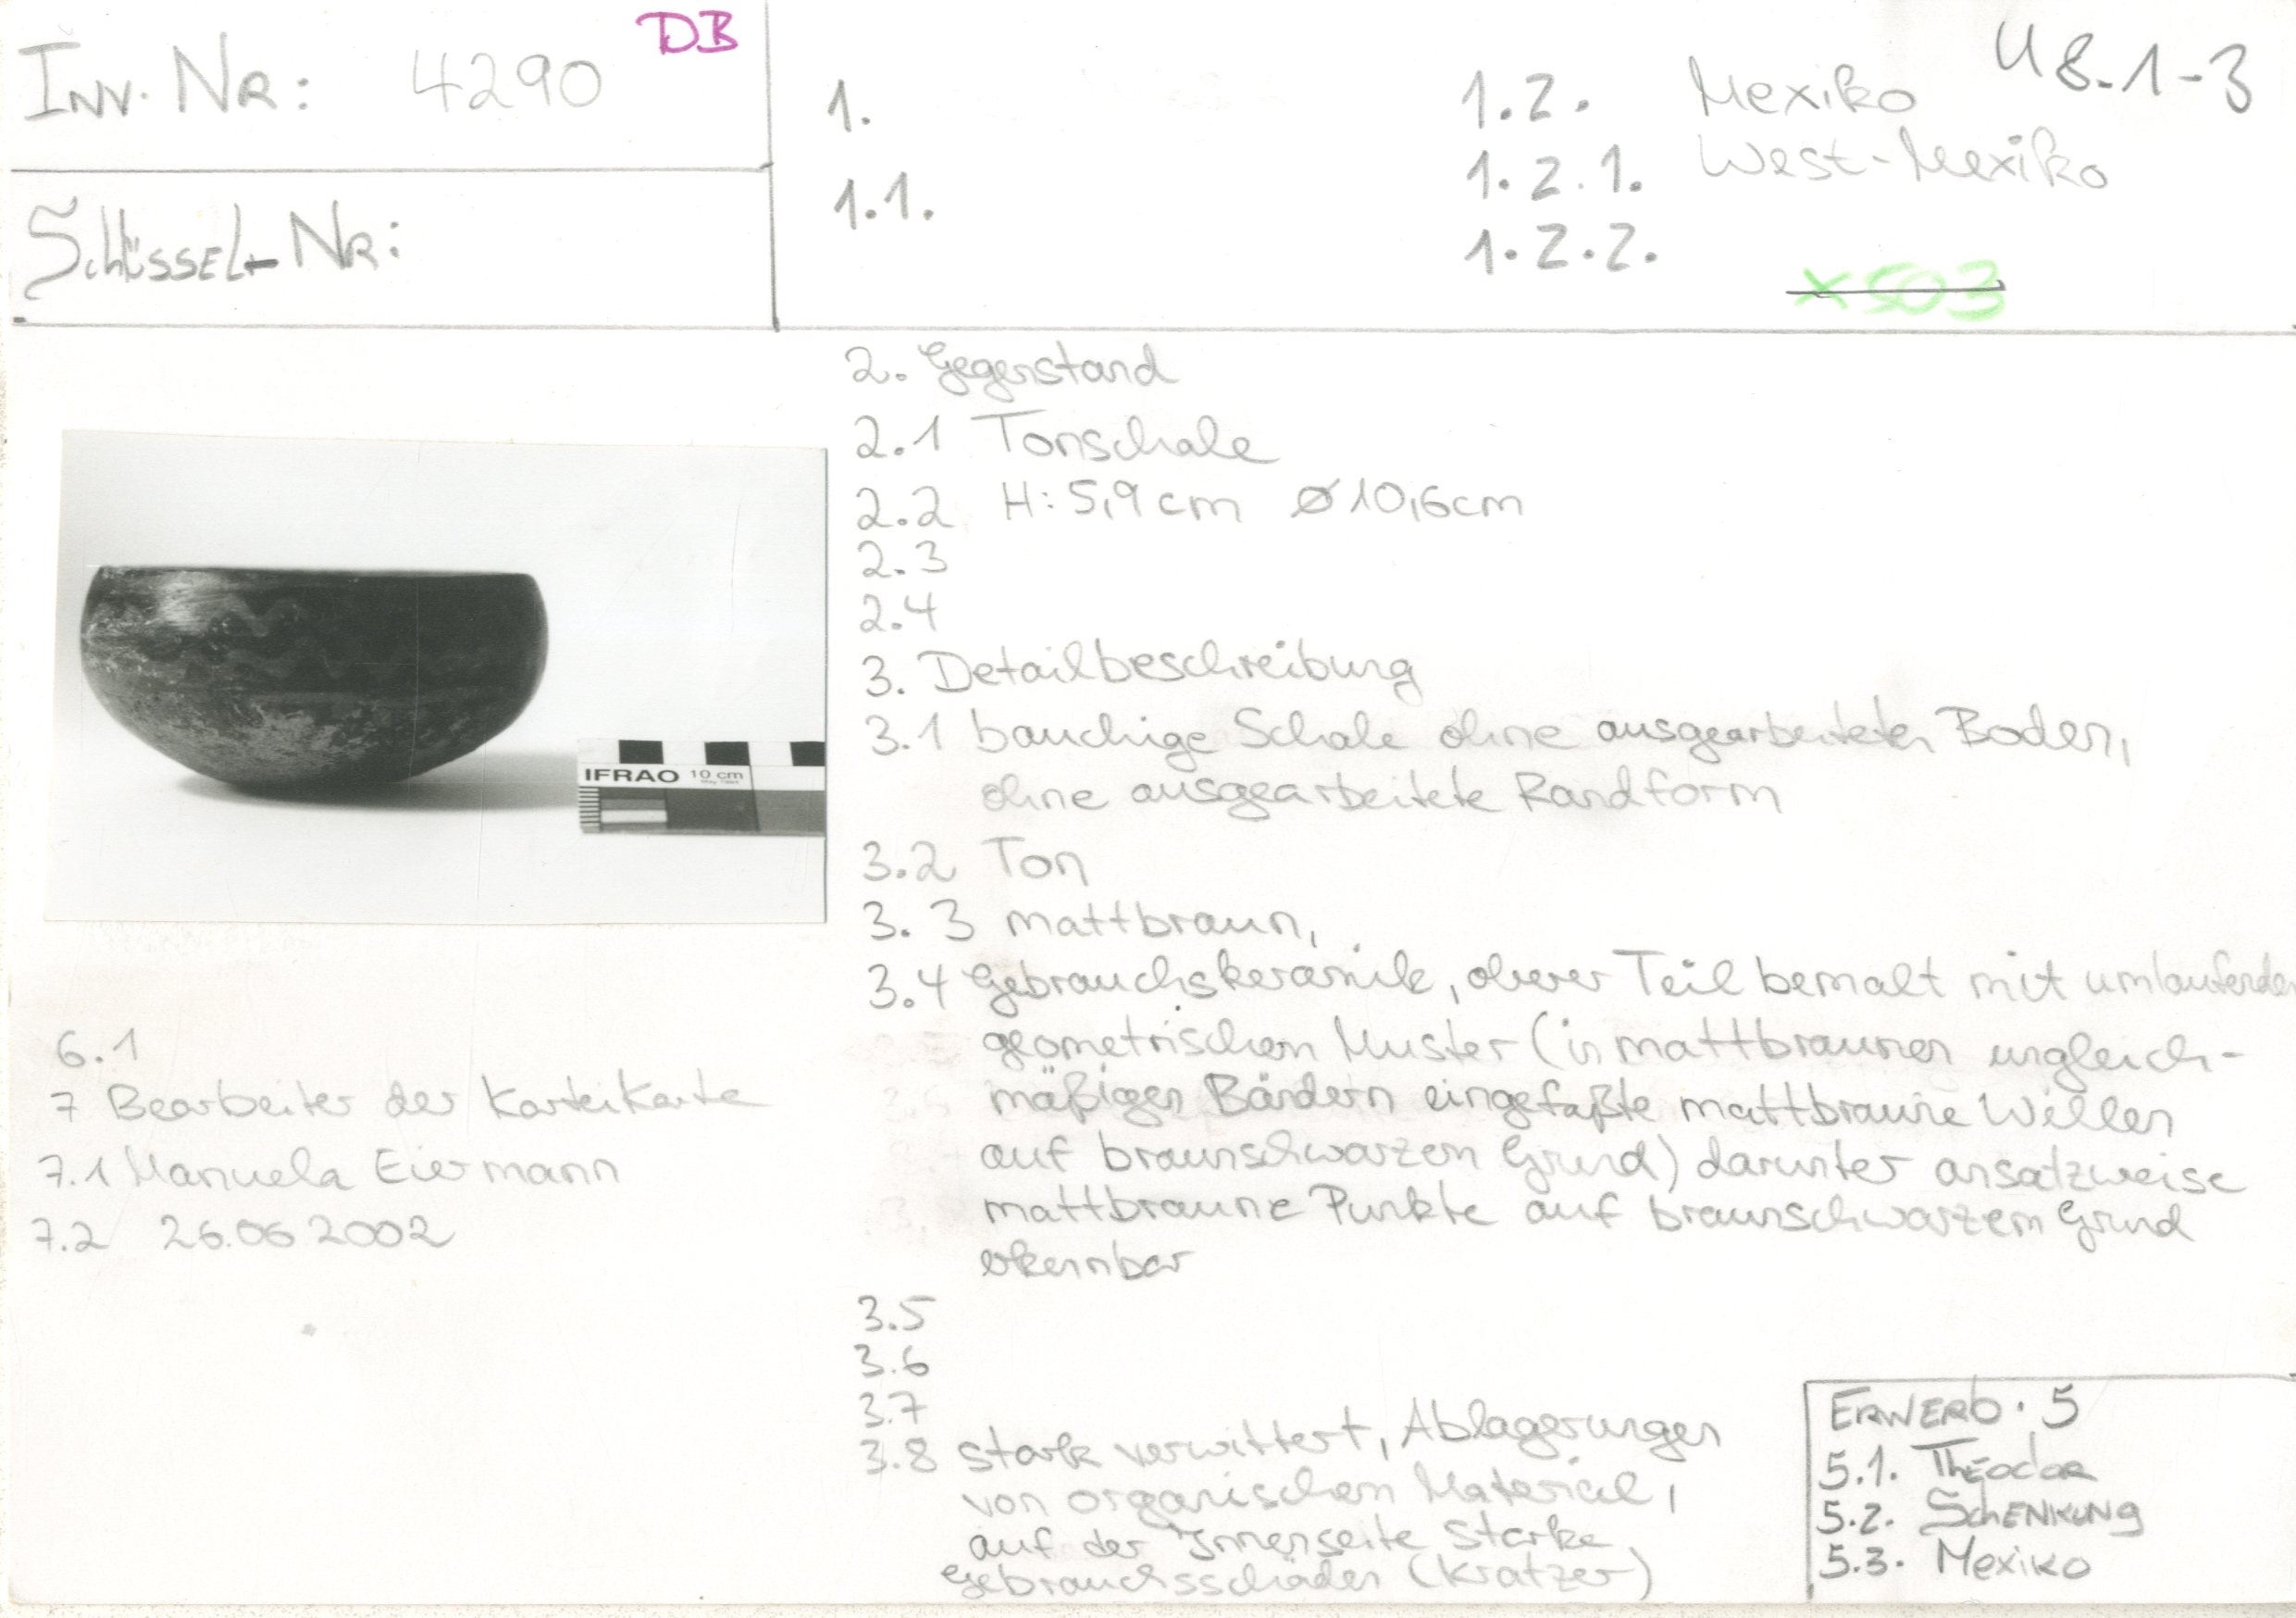 INV. NR: 4290 DB
SCHLÜSSEL-NR:
1.
1.1.
U8.1-3
1.2. Mexiko
1.2.1. West-Mexiko
1.2.2.
x503
2. Gegenstand
2.1 Tonschale
2.2 H: 5,9 cm ø 10,6cm
2.3
2.4
3. Detailbeschreibung
3.1 bauchige Schale ohne ausgearbeiteten Boden,
ohne ausgearbeitete Randform
3.2 Ton
3.3 mattbraun,
3.4 Gebrauchskeramik, oberer Teil bemalt mit umlaufenden
geometrischem Muster (in mattbraunen ungleich-
mäßigen Bändern eingefaßte mattbraune Wellen
auf braunschwarzem Grund) darunter ansatzweise
mattbraune Punkte auf braunschwarzem Grund
erkennbar
3.5
3.6
3.7
3.8 stark verwittert, Ablagerungen
von organischem Material,
auf der Innenseite starke
Gebrauchsschäden (Kratzer)
IFRAO 10 cm
6.1
7 Bearbeiter der Karteikarte
7.1 Manuela Eiermann
7.2 26.06 2002
ERWERB. 5
5.1. THEODOR
5.2. SCHENKUNG
5.3. MEXIKO